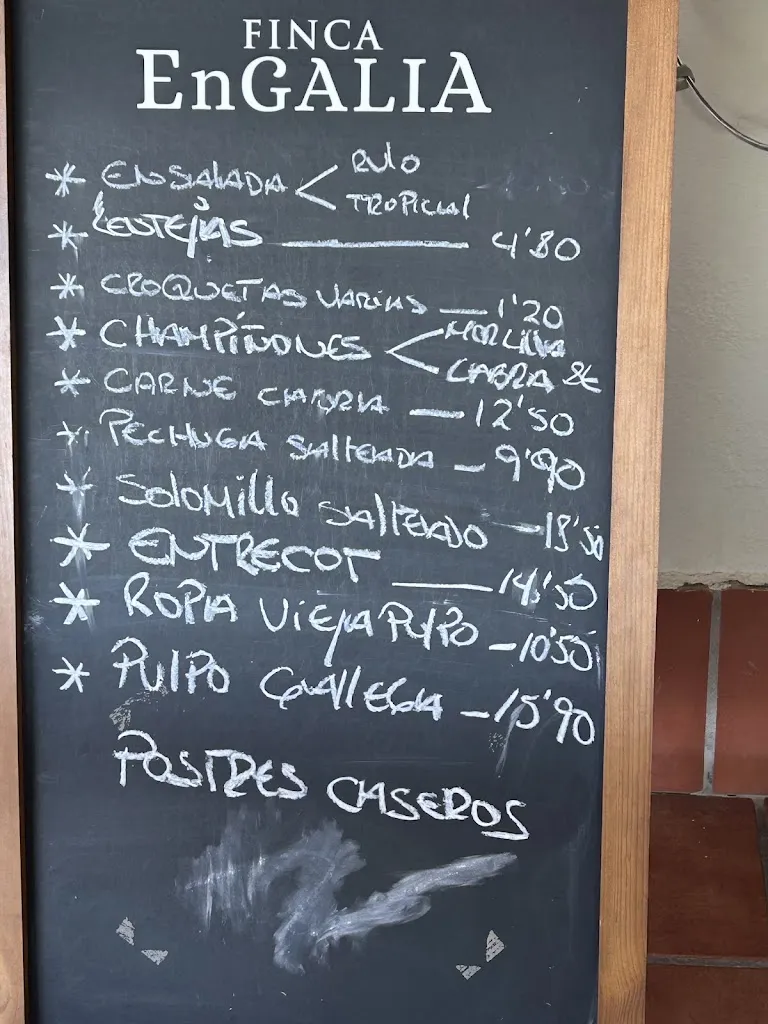 FINCA
EnGALIA
* ENSALADA < RULO
TROPICAL
* LENTEJAS — 4'80
* CROQUETAS VARIAS — 1'20
* CHAMPIÑONES < MORCILLA
CABRA 8€
* CARNE CABRA — 12'50
* PECHUGA SALTEADA — 9'90
* SOLOMILLO SALTEADO — 18'50
* ENTRECOT — 14'50
* ROPA VIEJA PULPO — 10'50
* PULPO GALLEGA — 15'90
POSTRES CASEROS